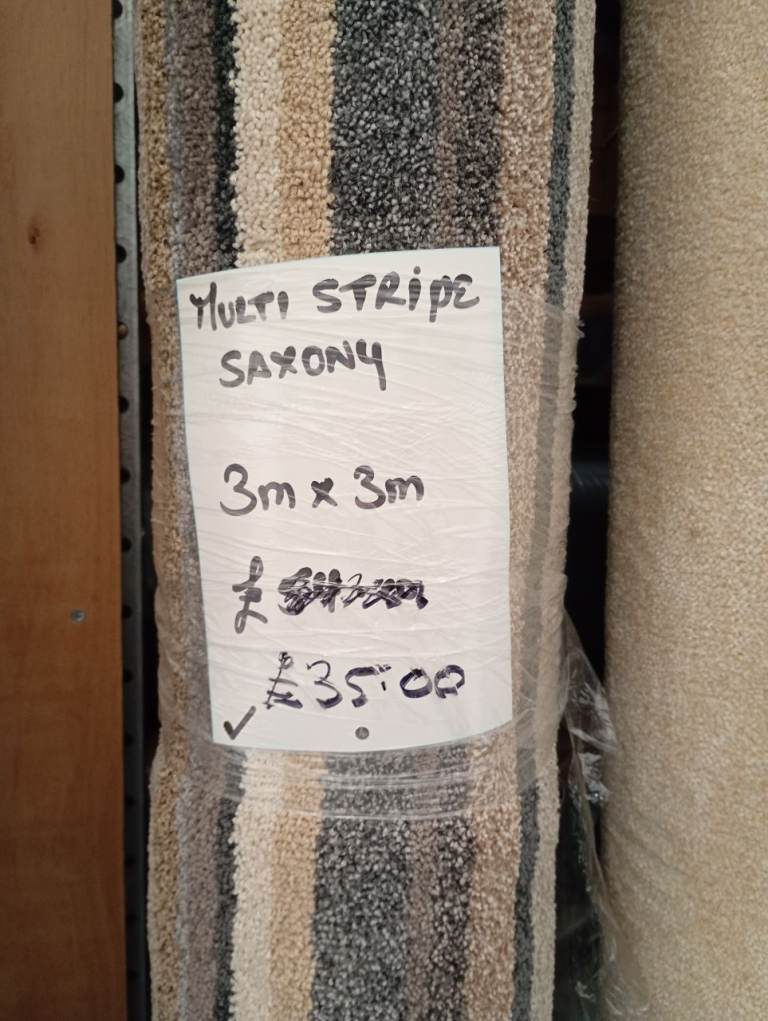 MULTI STRIPE
SAXONY
3m x 3m
£
£35.00